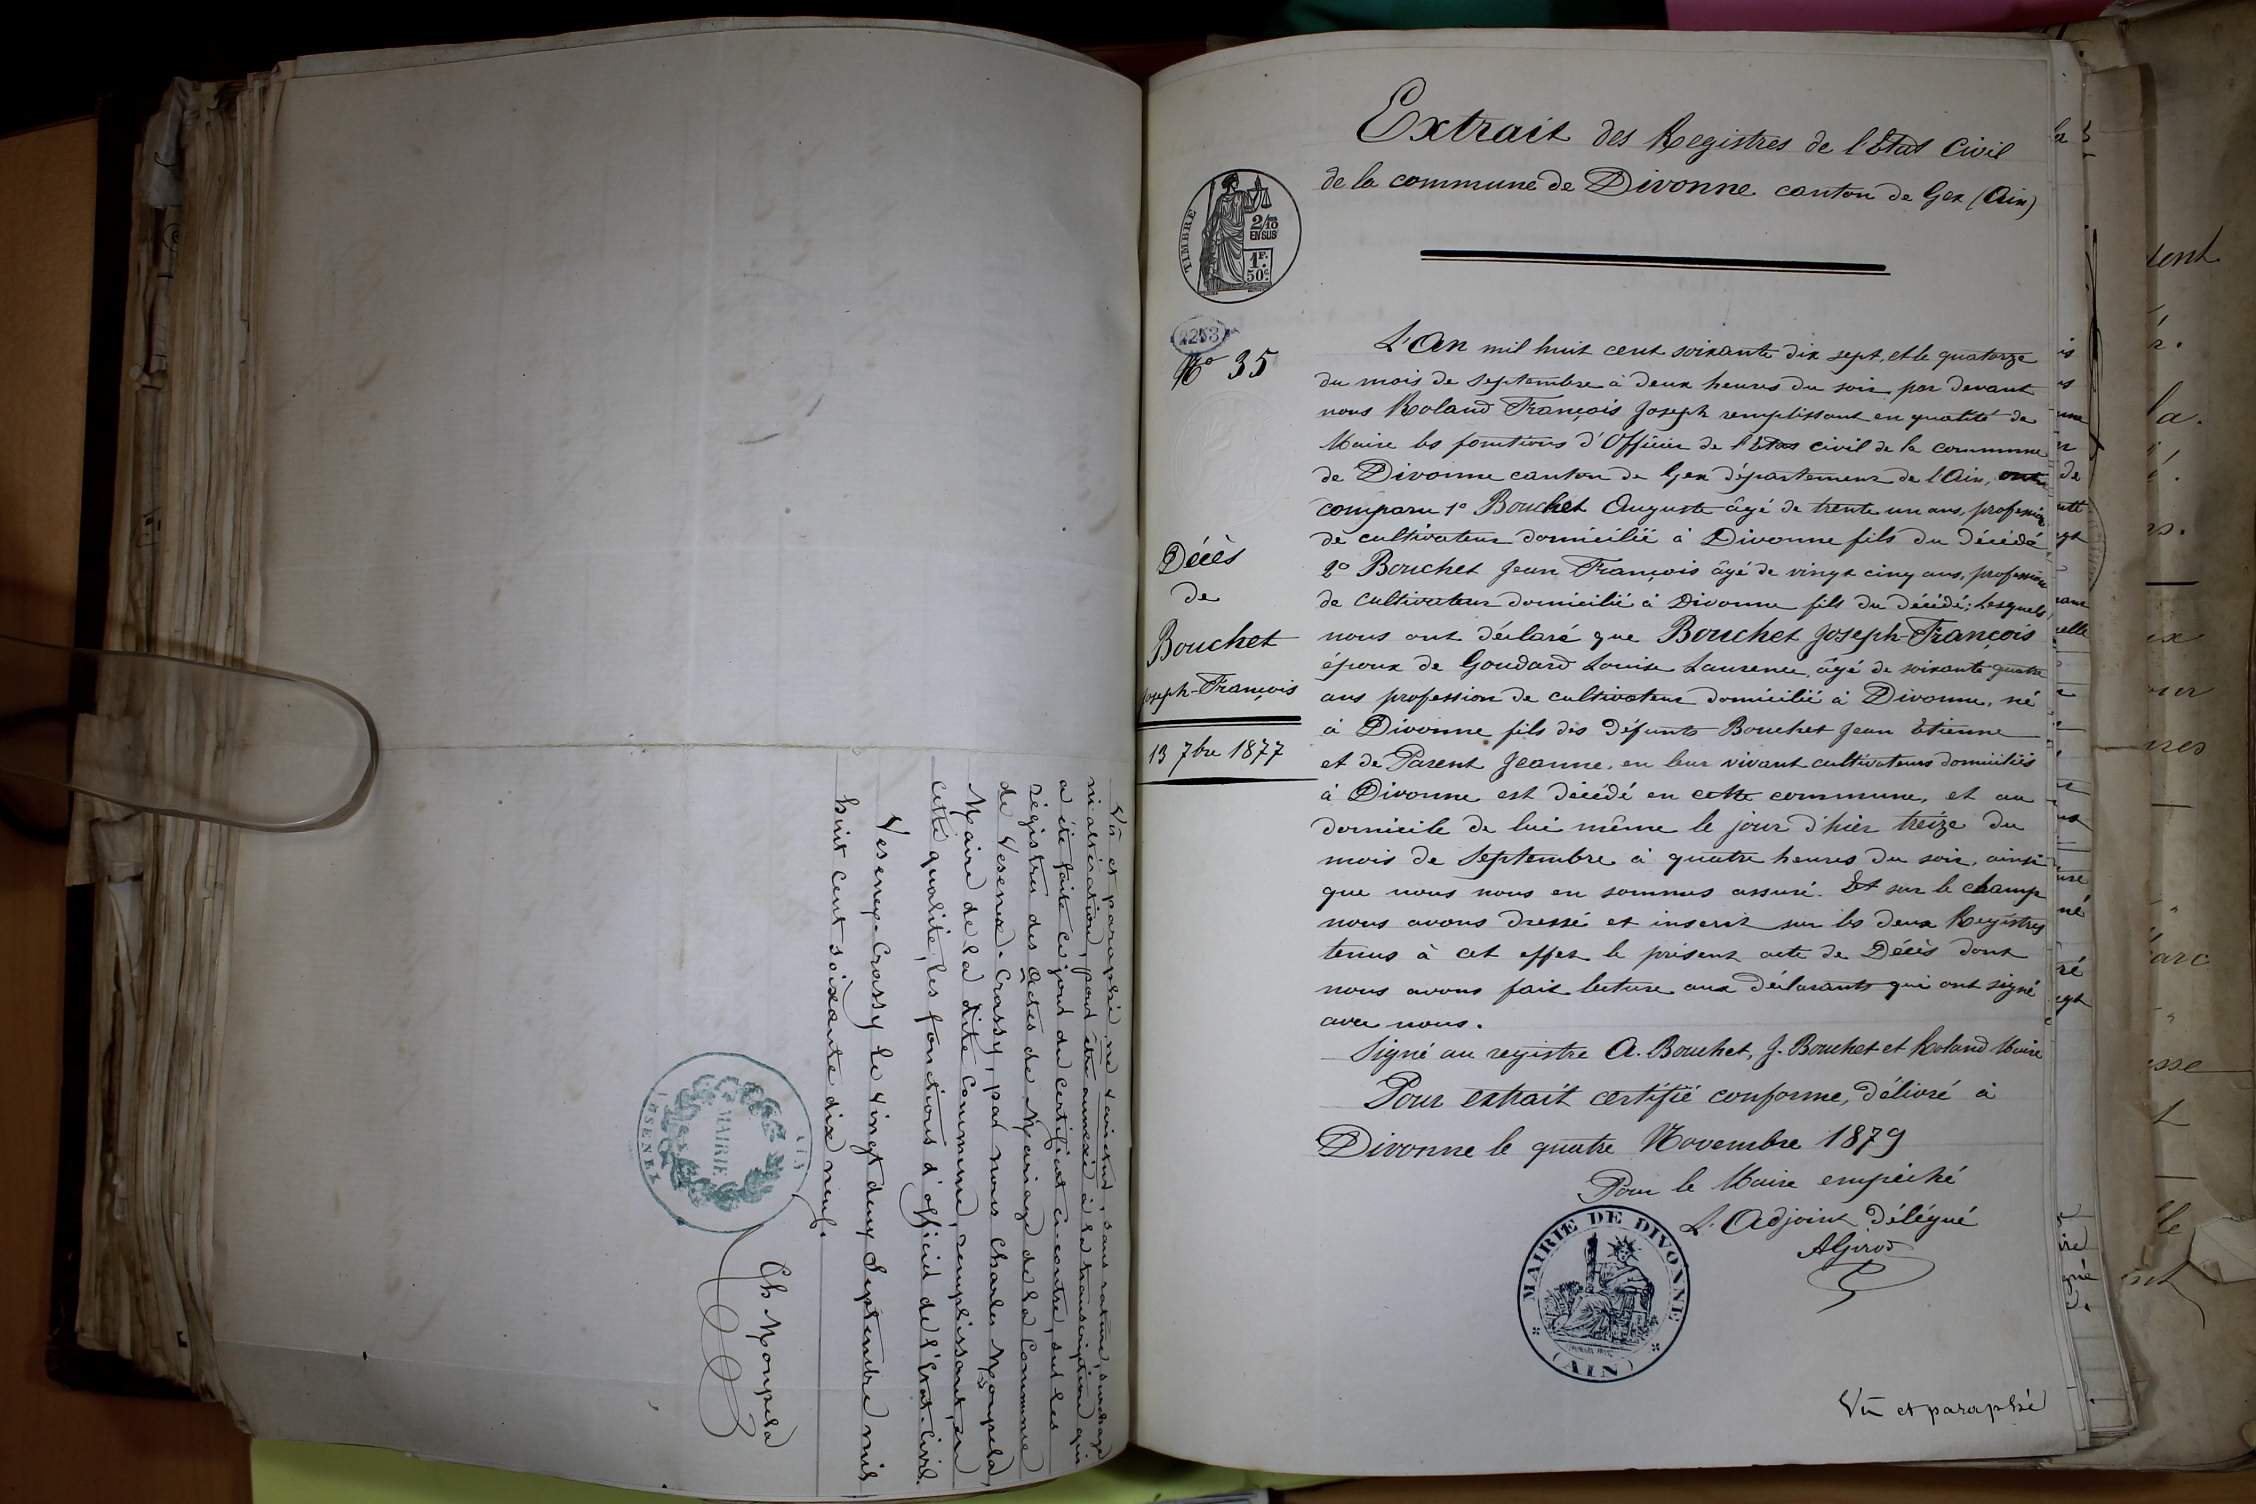 Vû et paraphé, ne varietur, sans rature, surcharge
ni altération, pour être annexé à la transcription qui
a été faite ce jour du certificat ci-contre, sur les
régistres des Actes de Mariage de la Commune
de Vesenex-Crassy, par nous Charles Monpela,
Maire de la dite Commune, remplissant, en
cette qualité, les fonctions d'officier de l'état-civil.
Vesenex-Crassy le vingt deux Septembre mil
huit cent soixante dix neuf.
Ch Monpela
MAIRIE
VESENEX
AIN
Extrait des Registres de l'Etat Civil
de la commune de Divonne canton de Gex (Ain)
TIMBRE
2/10
EN SUS
1F.
50c.
2253
No 35
Décès
de
Bouchet
Joseph-François
13 7bre 1877
L'An mil huit cent soixante dix sept, et le quatorze
du mois de Septembre à deux heures du soir par devant
nous Roland François Joseph remplissant en qualité de
Maire les fonctions d'Officier de l'Etat civil de la commune
de Divonne canton de Gex département de l'Ain, ont
comparu 1o Bouchet Auguste âgé de trente un ans, profession
de cultivateur domicilié à Divonne fils du décédé,
2o Bouchet Jean François âgé de vingt cinq ans, profession
de cultivateur domicilié à Divonne fils du décédé; lesquels
nous ont déclaré que Bouchet Joseph-François
époux de Goudard Louise Laurence, âgé de soixante quatre
ans profession de cultivateur domicilié à Divonne, né
à Divonne fils des défunts Bouchet Jean Etienne
et de Parent Jeanne, en leur vivant cultivateurs domiciliés
à Divonne est décédé en cette commune, et au
domicile de lui même le jour d'hier treize du
mois de Septembre à quatre heures du soir, ainsi
que nous nous en sommes assuré. Et sur le champ
nous avons dressé et inscrit sur les deux Registres
tenus à cet effet le présent acte de Décès dont
nous avons fait lecture aux déclarants qui ont signé
avec nous.
Signé au registre A. Bouchet, J. Bouchet et Roland Maire
Pour extrait certifié conforme, délivré à
Divonne le quatre Novembre 1879
Pour le Maire empêché
L'Adjoint Délégué
AGirod
MAIRIE DE DIVONNE
(AIN)
Vû et paraphé